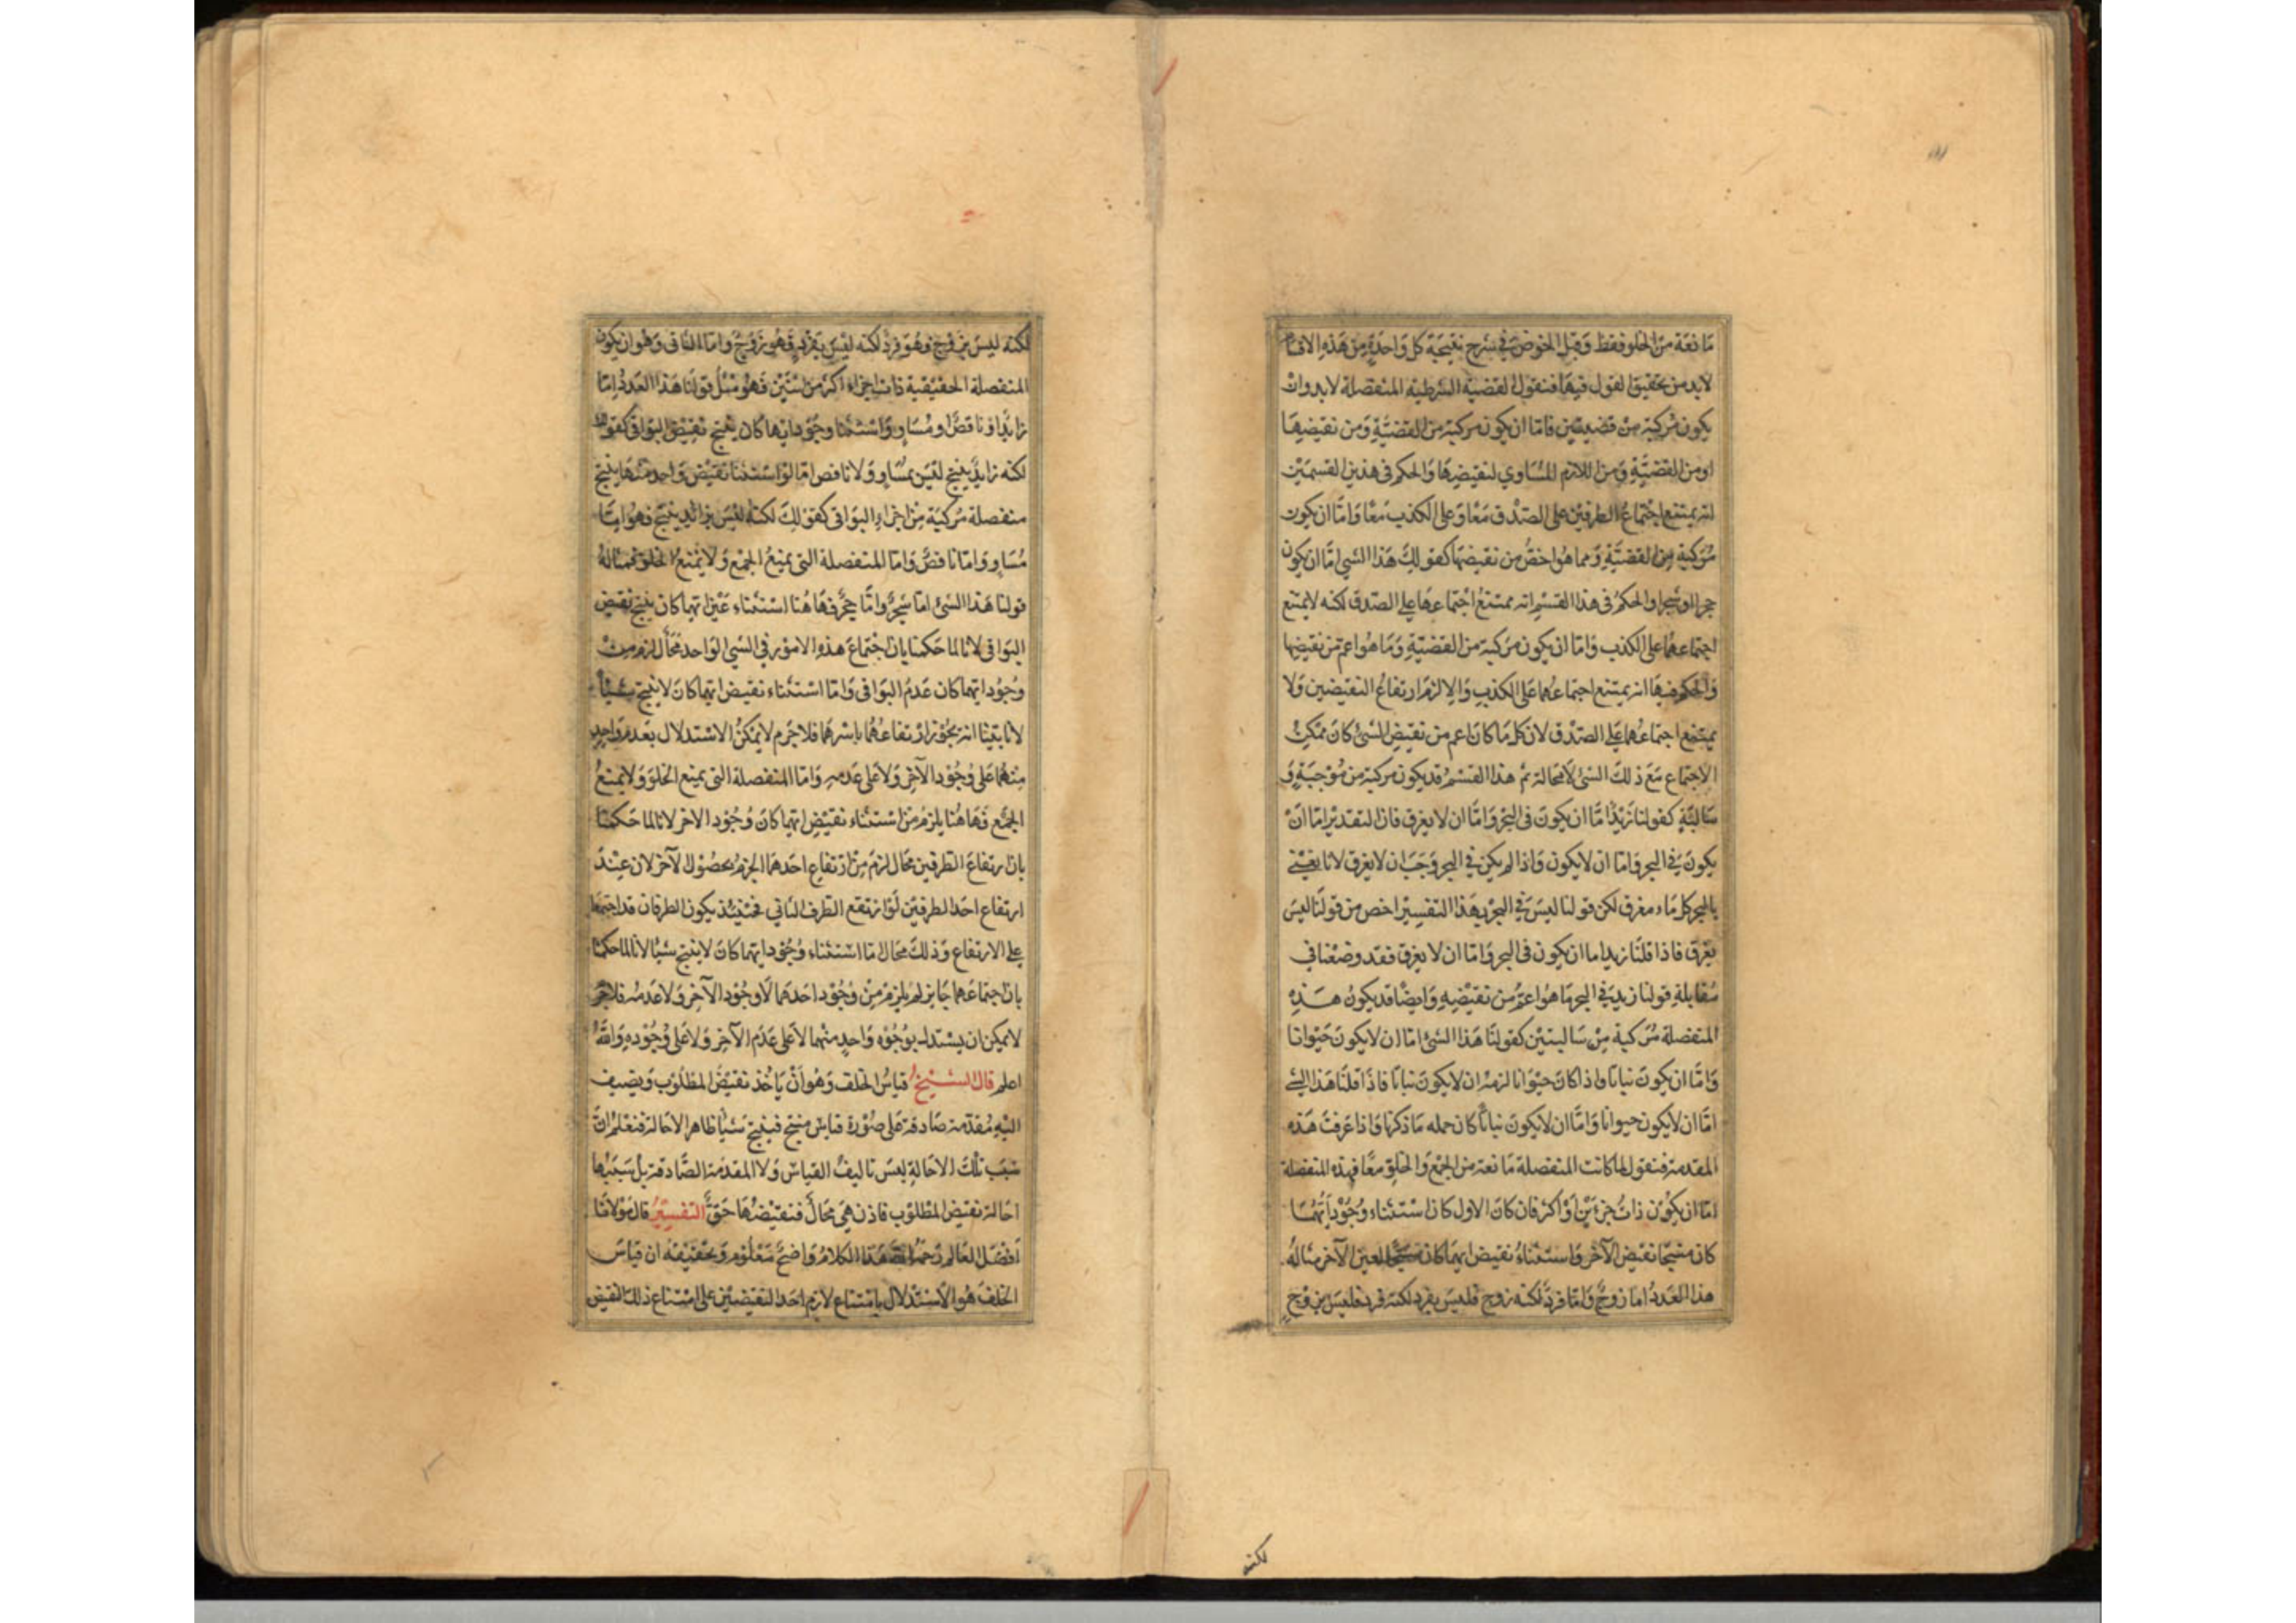 مانعة من الخلو فقط وقبل الخوض في شرح نتيجة كل واحدة من هذه الاقسام
لابد من تحقيق القول فيها فنقول القضية الشرطية المنفصلة لابد وان
يكون مركبة من قضيتين فاما ان يكون مركبة من القضية ومن نقيضها
او من القضية ومن اللازم المساوي لنقيضها والحكم في هذين القسمين
انه يمتنع اجتماع الطرفين على الصدق معا وعلى الكذب معا واما ان يكون
مركبة من القضية ومما هو اخص من نقيضها كقولك هذا الشي اما ان يكون
حجرا او شجرا والحكم في هذا القسم انه ممتنع اجتماعها على الصدق لكنه لا يمتنع
اجتماعهما على الكذب واما ان يكون مركبة من القضية وما هو اعم من نقيضها
والحكم فيها انه يمتنع اجتماعهما على الكذب والا لزم ارتفاع النقيضين ولا
يمتنع اجتماعهما على الصدق لان كل ما كان اعم من نقيض الشئ كان ممكن
الاجتماع مع ذلك الشئ لا محالة ثم هذا القسم قد يكون مركبة من موجبة و
سالبة كقولنا زيد اما ان يكون في البحر واما ان لا يغرق فان التقدير اما ان
يكون في البحر واما ان لا يكون واذا لم يكن في البحر وجب ان لا يغرق لانا نعني
بالبحر كل ماء مغرق لكن قولنا ليس في البحر بهذا التفسير اخص من قولنا ليس
يغرق فاذا قلنا زيد اما ان يكون في البحر واما ان لا يغرق فقد وضعنا في
مقابلة قولنا زيد في البحر ما هو اعم من نقيضه وايضا قد يكون هذه
المنفصلة مركبة من سالبتين كقولنا هذا الشئ اما ان لا يكون حيوانا
واما ان يكون نباتا واذا كان حيوانا لزم ان لا يكون نباتا فاذا قلنا هذا الشئ
اما ان لا يكون حيوانا واما ان لا يكون نباتا كان حمله ما ذكرنا واذا عرفت هذه
المقدمة فنقول لما كانت المنفصلة مانعة من الجمع والخلو معا فهذه المنفصلة
اما ان يكون ذات جزءين او اكثر فان كان الاول كان استثناء وجود ايهما
كان منتجا نقيض الآخر واستثناء نقيض ايهما كان لعين الآخر مثاله
هذا العدد اما زوج واما فرد لكنه زوج فليس بفرد لكنه فرد فليس بزوج
لكنه
لكنه ليس بزوج وهو فرد لكنه ليس بفرد فهو زوج واما الثاني وهو ان يكون
المنفصلة الحقيقية ذات اجزاء اكثر من اثنين فهو مثل قولنا هذا العدد اما
زايد او ناقص او مساو واستثنا وجود ايها كان ينتج نقيض البواقي كقولك
لكنه زايد ينتج ليس بمساو ولا ناقص اما لو استثنا نقيض واحد منها ينتج
منفصلة مركبة من اجزاء البواقي كقولك لكنه ليس بزائد ينتج فهو اما
مساو واما ناقص واما المنفصلة التى يمنع الجمع ولا يمنع الخلو فمثاله
قولنا هذا الشئ اما شجر واما حجر فها هنا استثناء عين ايهما كان ينتج نقيض
البواقى لانا لما حكمنا بان اجتماع هذه الامور في الشي الواحد محال لزم من
وجود ايهما كان عدم البواقى واما استثناء نقيض ايهما كان لا ينتج شيئا
لانا بينا انه يجوز ارتفاعهما باسرهما فلا جرم لا يمكن الاستدلال بعدم واحد
منهما على وجود الآخر ولا على عدمه واما المنفصلة التى يمنع الخلو ولا يمنع
الجمع فها هنا يلزم من استثناء نقيض ايهما كان وجود الاخر لانا لما حكمنا
بان ارتفاع الطرفين محال لزم من ارتفاع احدهما الجزم بحصول الآخر لان عند
ارتفاع احد الطرفين لو ارتفع الطرف الثاني فحينئذ يكون الطرفان قد اجتمعا
على الارتفاع وذلك محال اما استثناء وجود ايهما كان لا ينتج شيئا لانا لما حكمنا
بان اجتماعهما جايز لم يلزم من وجود احدهما لا وجود الآخر ولا عدمه فلا جرم
لا يمكن ان يستدل بوجود واحد منهما لا على عدم الآخر ولا على وجوده والله
اعلم قال الشيخ قياس الخلف وهو ان ياخذ نقيض المطلوب ويضيف
اليه مقدمة صادقة على صورة قياس منتج فينتج شيئا ظاهر الاحالة فنعلم ان
سبب تلك الاحالة ليس تاليف القياس ولا المقدمة الصادقة بل سببها
احالة نقيض المطلوب فاذن هي محال فنقيضها حق التفسير قال مولانا
افضل العالم رحمه الله هذا الكلام واضح معلوم وتحقيقه ان قياس
الخلف هو الاستدلال بامتناع لازم احد النقيضين على امتناع ذلك النقيض